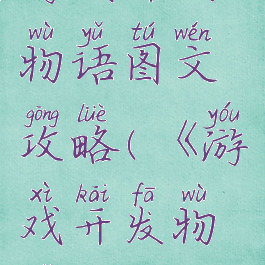 wù yǔ tú wén
物语图文
gōng lüè yóu
攻略(《游
xì kāi fā wù
戏开发物